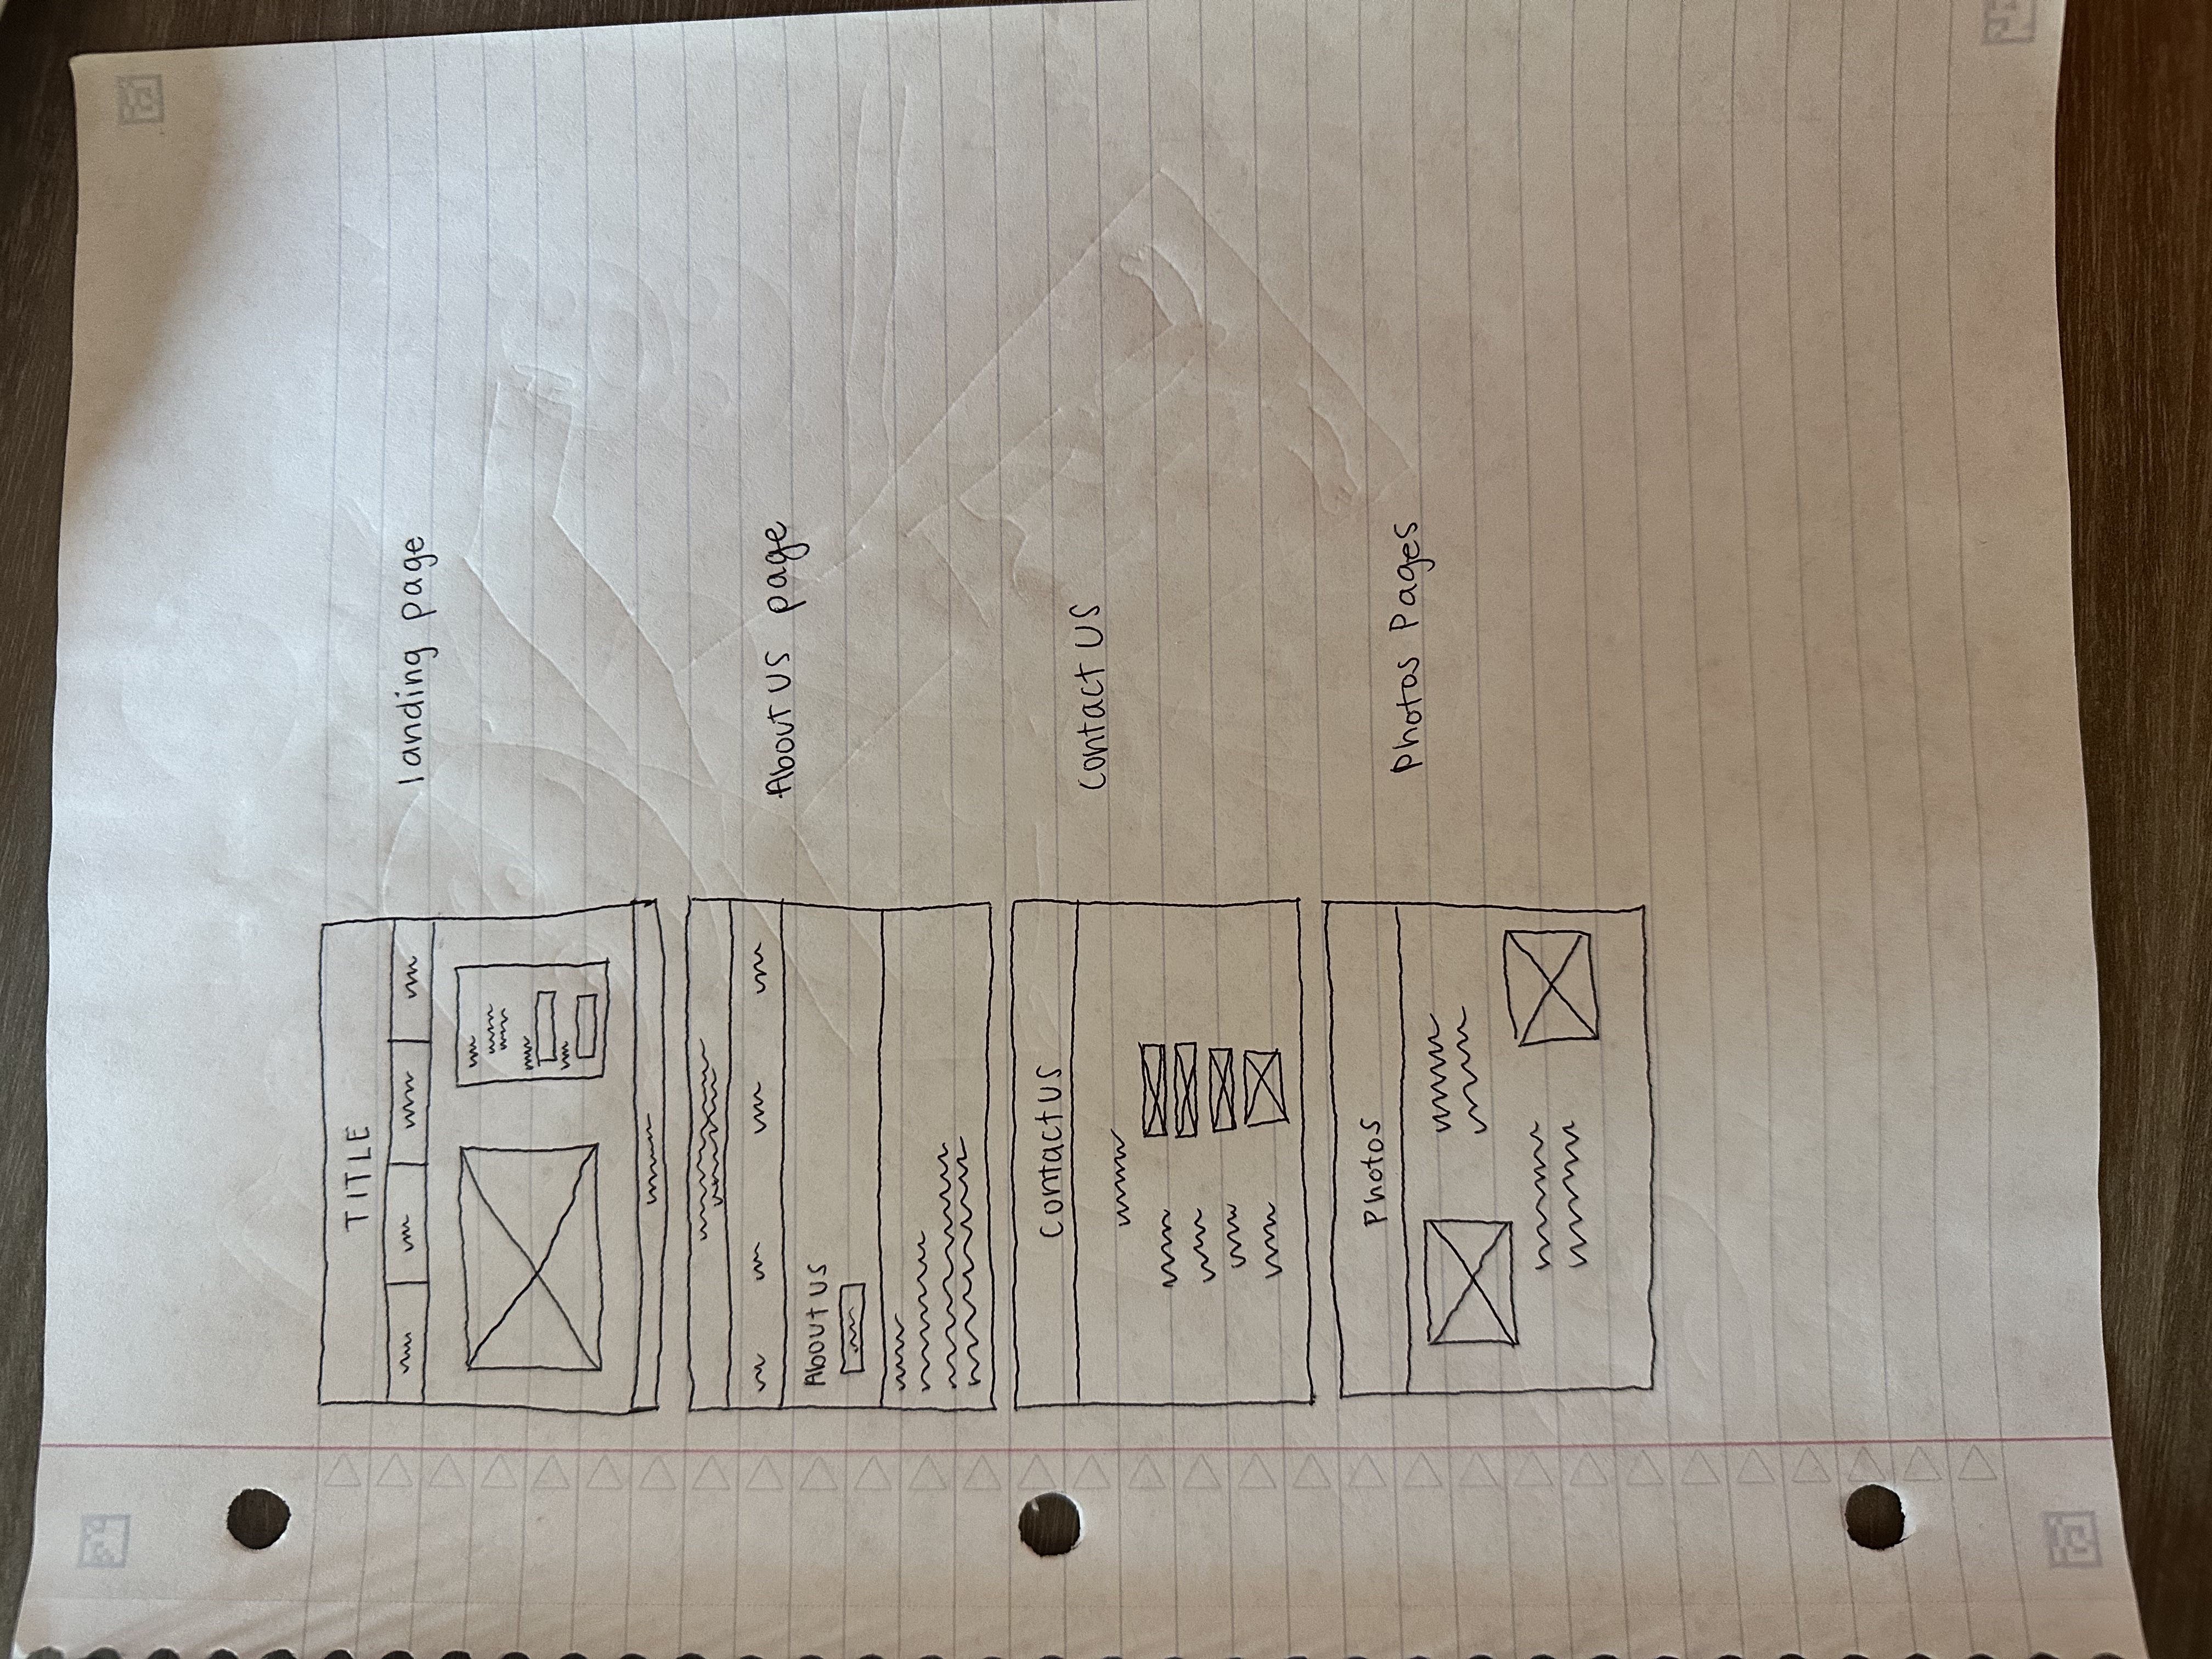 TITLE
landing page
About us page
About us
Contact us
Contact us
Photos
Photos Pages